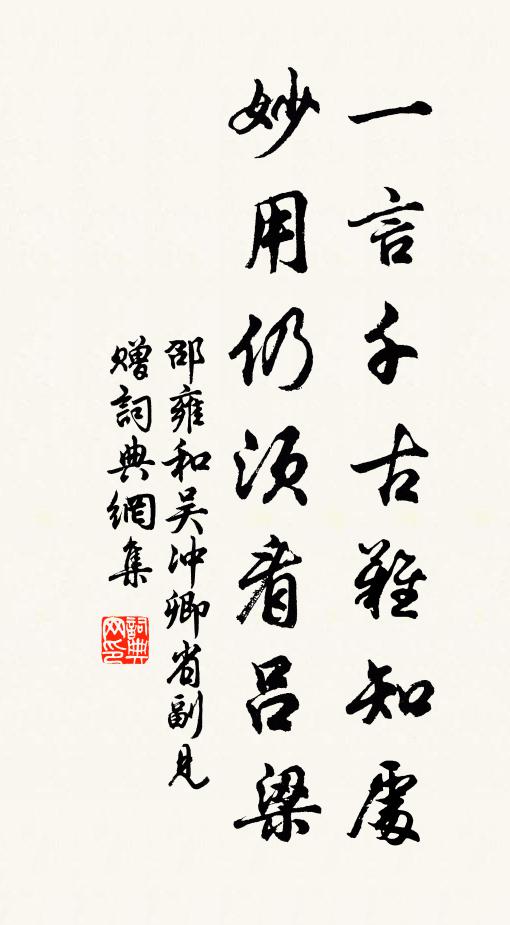 一言千古難知處
妙用仍須看呂梁
邵雍和吴冲卿省副見
贈詞典網集
詞典网印